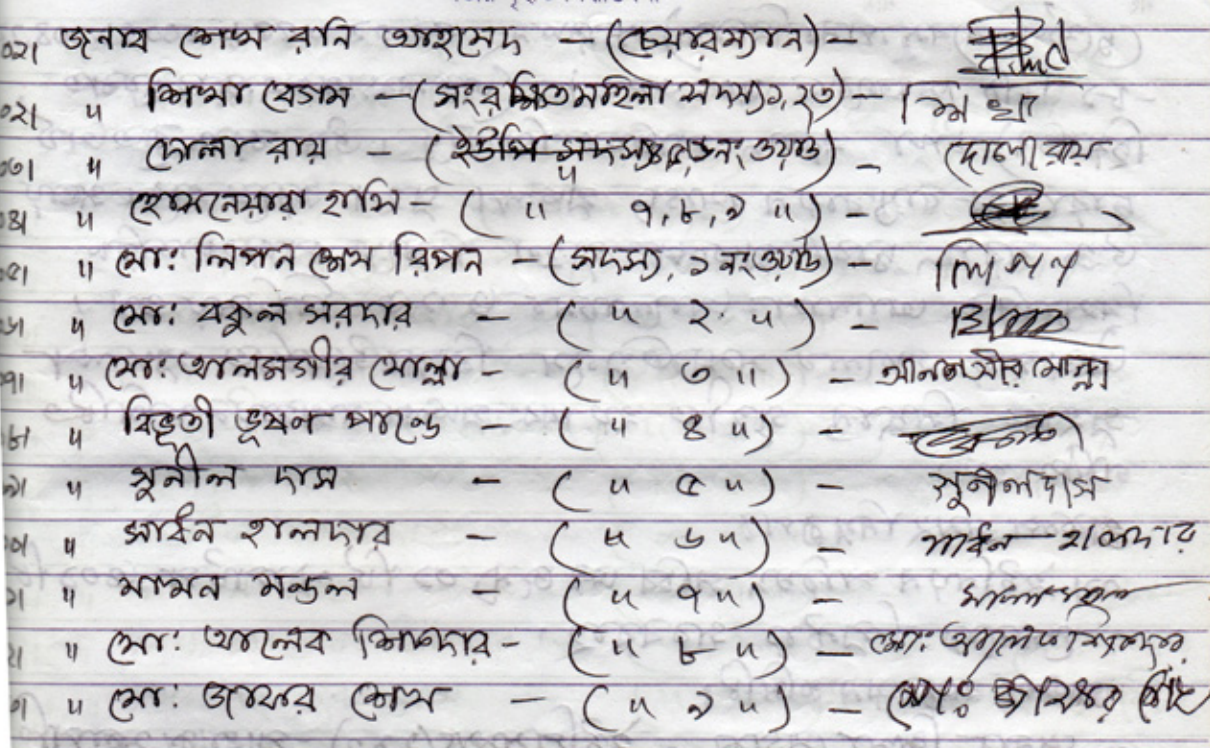 ০১। জনাব শেখ রানি আহমেদ – (চেয়ারম্যান) –
০২। " শিখা বেগম – (সংরক্ষিত মহিলা সদস্য ১,২৩) – শিখা
০৩। " দোলা রায় – (ইউপি সদস্য ৪,৫,৬নং ওয়ার্ড) – দোলা রায়
০৪। " হোসনেয়ারা হাসি – ( " ৭,৮,৯ " ) –
০৫। " মো: লিপন শেখ রিপন – (সদস্য, ১ নং ওয়ার্ড) – লিপন
৬। " মো: বকুল সরদার – ( " ২ " ) –
৭। " মো: আলমগীর মোল্লা – ( " ৩ " ) – আলমগীর মোল্লা
৮। " বিভূতী ভূষণ পান্ডে – ( " ৪ " ) –
৯। " সুনীল দাস – ( " ৫ " ) – সুনীল দাস
০। " সাধন হালদার – ( " ৬ " ) – সাধন হালদার
১। " মামন মন্ডল – ( " ৭ " ) –
২। " মো: আলেক শিকদার – ( " ৮ " ) – মো: আলেক শিকদার
৩। " মো: জাফর শেখ – ( " ৯ " ) – মো: জাফর শেখ